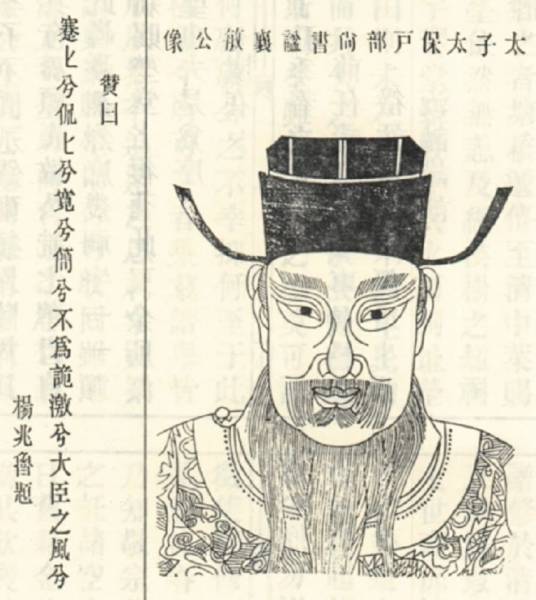 太子太保戶部尚書謚襄敏公像
贊曰
蹇匕兮侃匕兮寬兮簡兮不爲詭激兮大臣之風兮
楊兆魯題